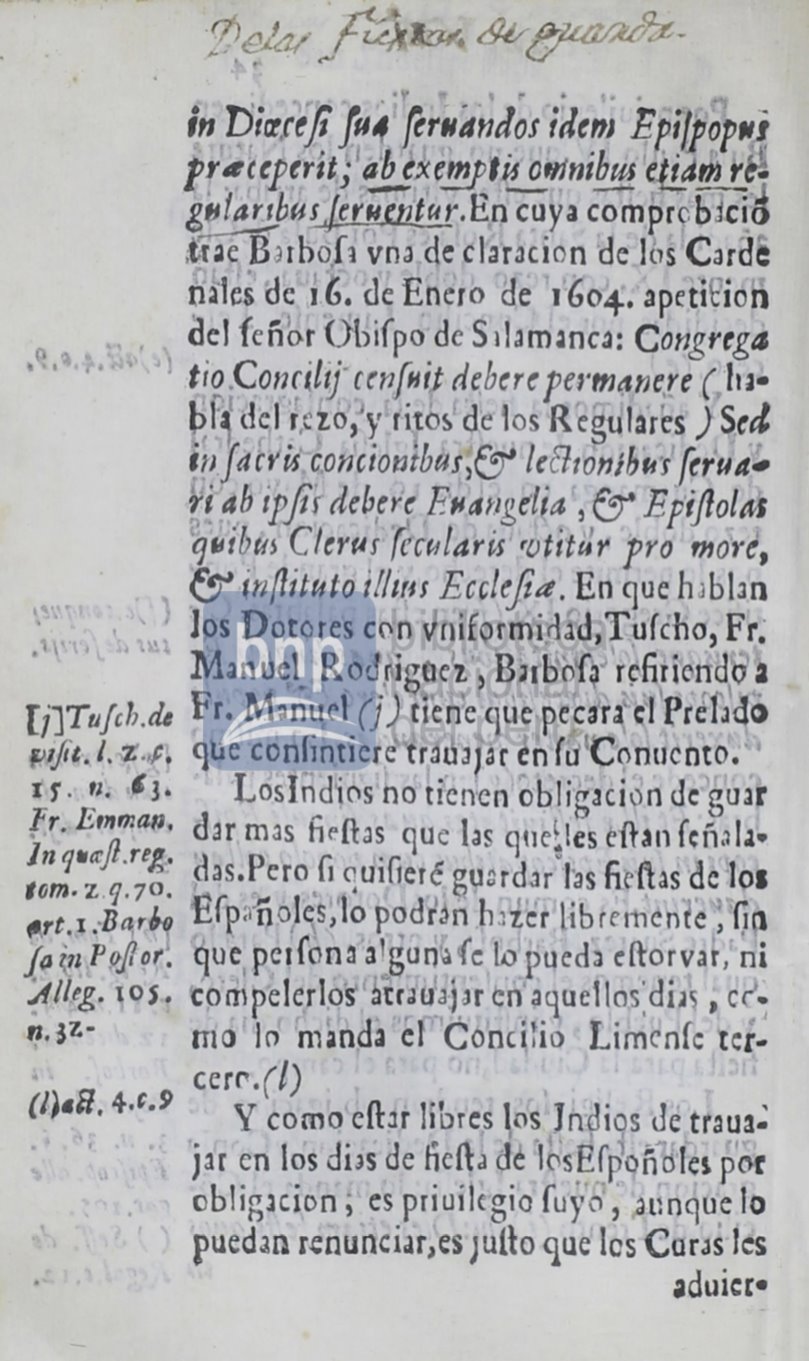 De las fiestas de guarda.
in Diœcesi sua seruandos idem Epispopus
præceperit; ab exemptis omnibus etiam re-
gularibus seruentur. En cuya comprobació
trae Barbosa vna de claracion de los Carde
nales de 16. de Enero de 1604. apeticion
del señor Obispo de Salamanca: Congrega
tio Concilij censuit debere permanere ( ha-
bla del rezo, y ritos de los Regulares ) Sed
in sacris concionibus, & lectionibus serua-
ri ab ipsis debere Euangelia , & Epistolas
quibus Clerus secularis vtitur pro more,
& instituto illius Ecclesiæ. En que hablan
los Dotores con vniformidad, Tuscho, Fr.
Manuel Rodriguez , Barbosa refiriendo a
Fr. Manuel (j) tiene que pecara el Prelado
que consintiere trauajar en su Conuento.
[j] Tusch. de
visit. l. 2. c.
15. n. 63.
Fr. Emman.
In quæst. reg.
tom. 2 q. 70.
art. 1. Barbo
sa in Postor.
Alleg. 105.
n. 32-
LosIndios no tienen obligacion de guar
dar mas fiestas que las que les estan señala-
das. Pero si quisieré guardar las fiestas de los
Españoles, lo podran hazer libremente , sin
que persona alguna se lo pueda estorvar, ni
compelerlos atrauajar en aquellos dias , co-
mo lo manda el Concilio Limense ter-
cero. (l)
(l) act. 4. c. 9
Y como estar libres los Indios de traua-
jar en los dias de fiesta de losEspoñoles por
obligacion , es priuilegio suyo , aunque lo
puedan renunciar, es justo que los Curas les
aduier-
bnp
biblioteca
nacional
del perú